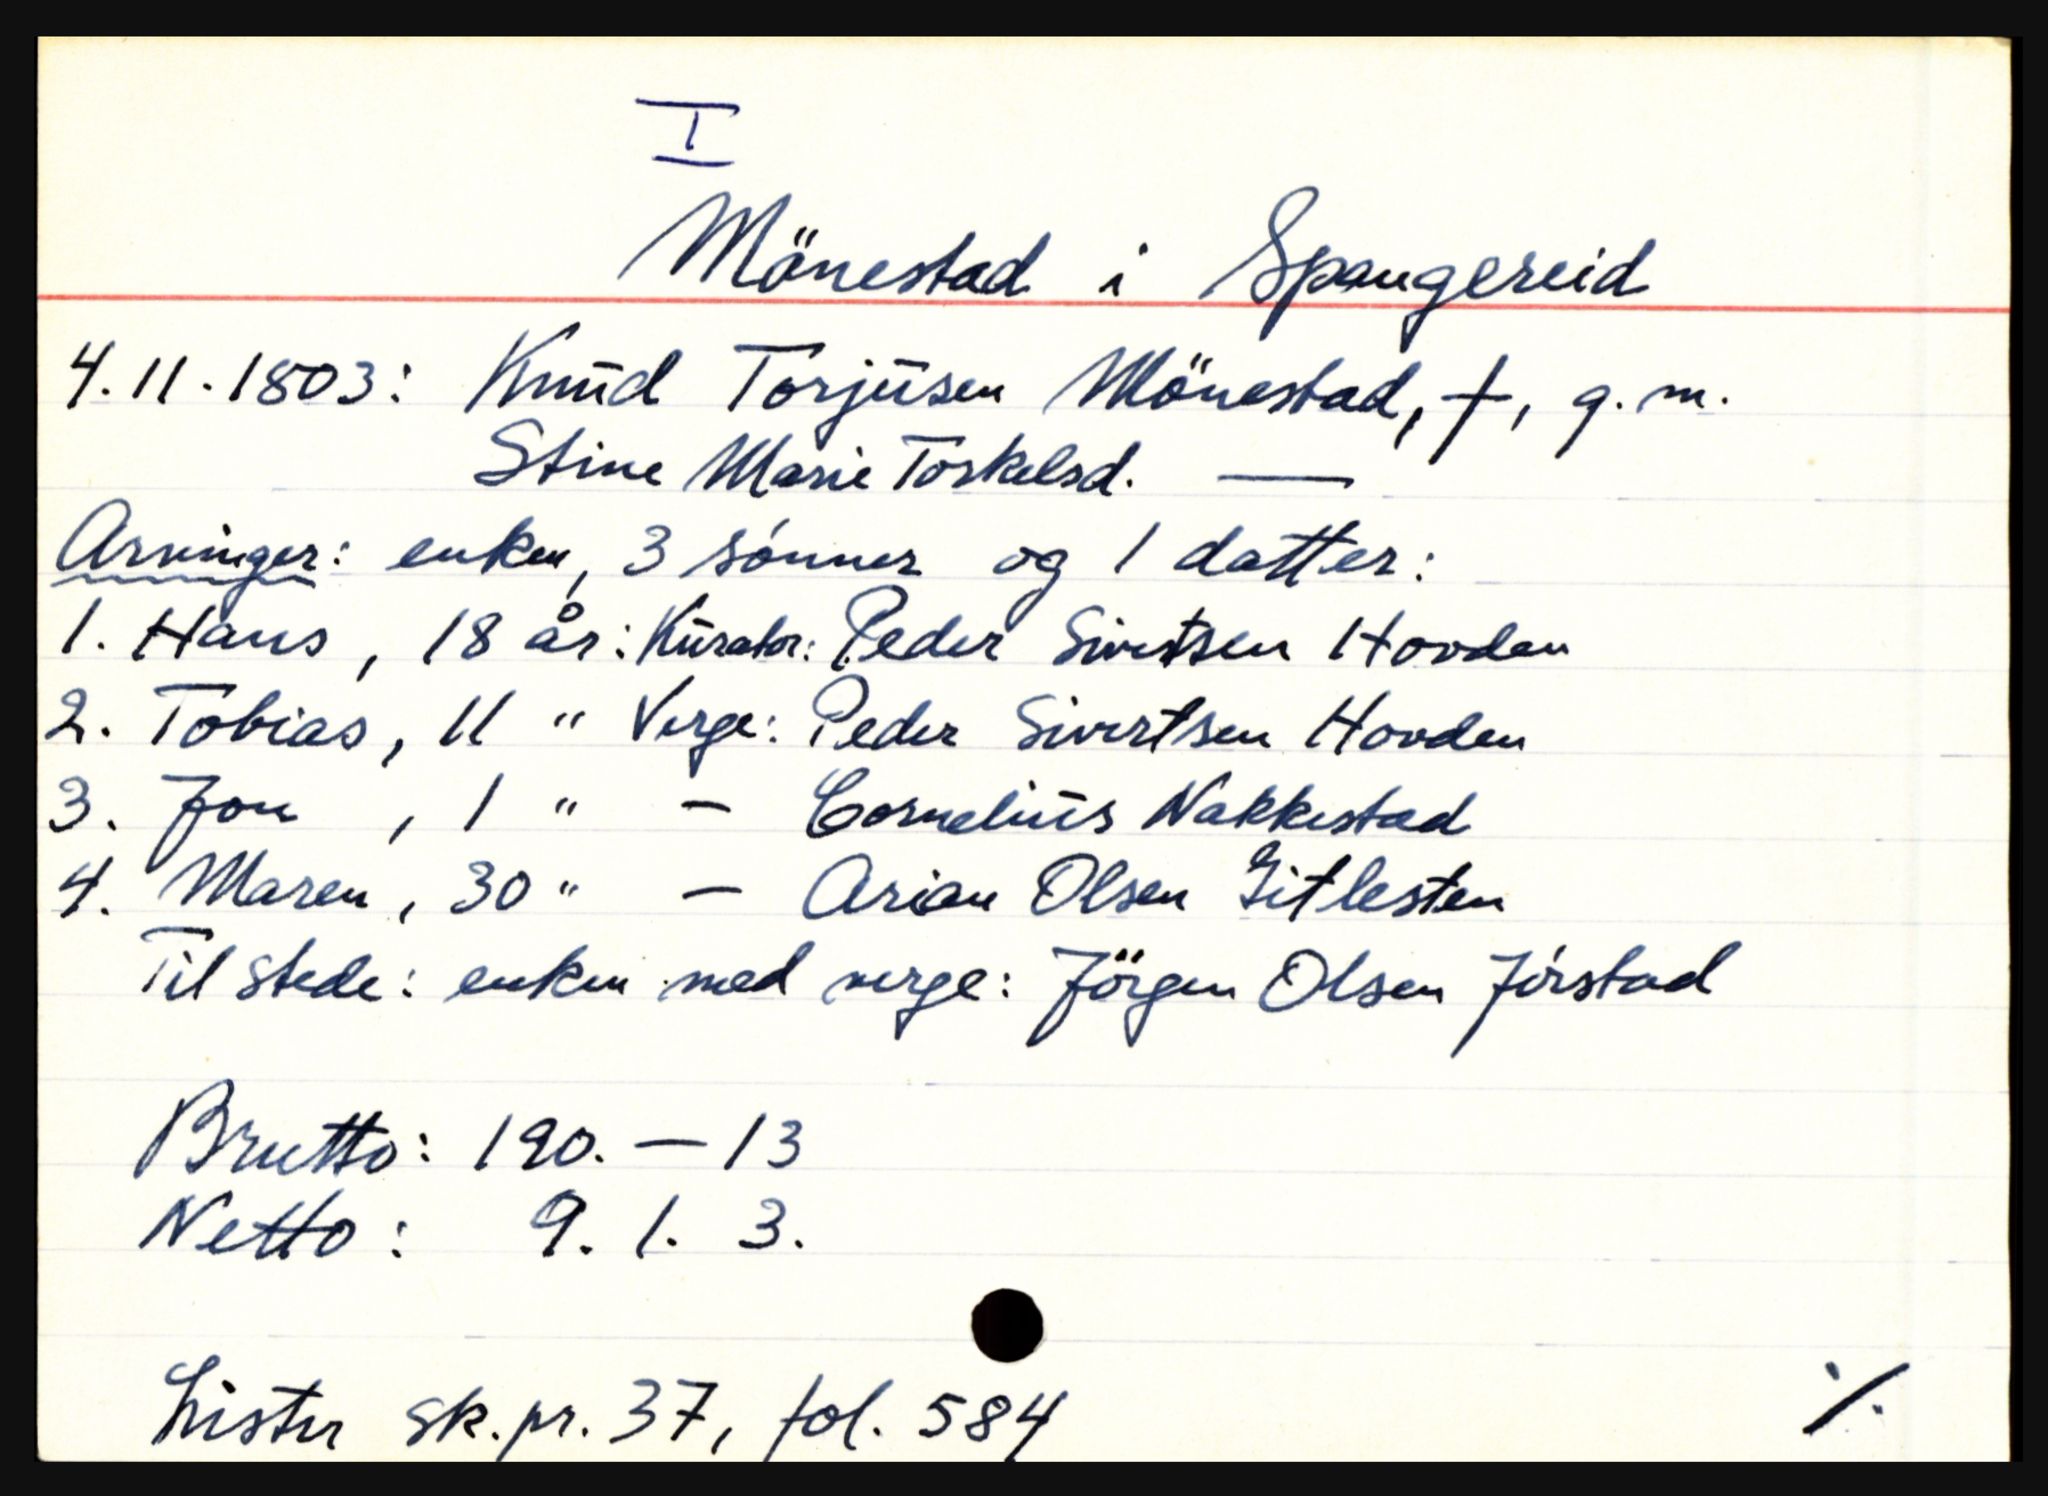 I
Mönestad i Spangereid
4.11.1803: Knud Torjusen Mönestad, †, g.m.
Stine Marie Torkelsd. —
Arvinger: enken, 3 sónner og 1 datter:
1. Hans, 18 år: Kurator: Peder Sivertsen Hovden
2. Tobias, 11 " Verge: Peder Sivertsen Hovden
3. Jon, 1 " — Cornelius Nakkestad
4. Maren, 30 " — Arian Olsen Gitlesten
Til stede: enken med verge: Jörgen Olsen Jórstad
Brutto: 190. — 13
Netto: 9. 1. 3.
Lister sk.pr. 37, fol. 584
⁒